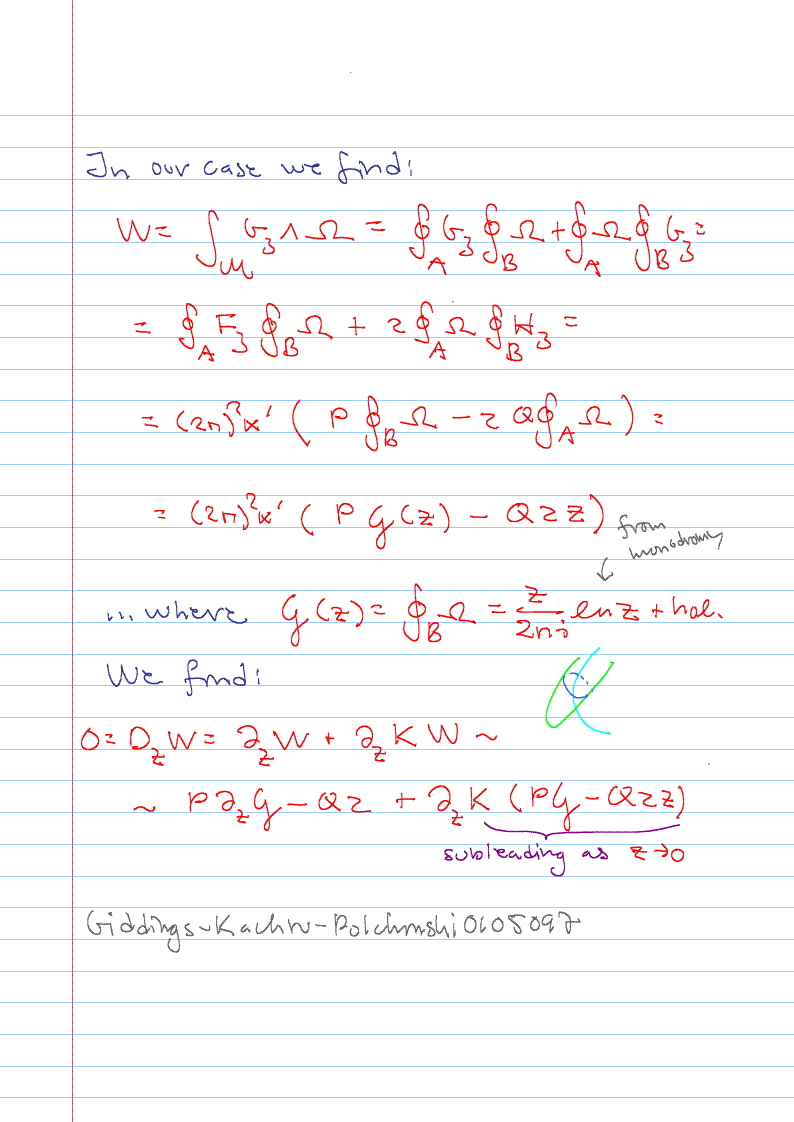 In our case we find:
W = ∫_M G₃ ∧ Ω = ∮_A G₃ ∮_B Ω + ∮_A Ω ∮_B G₃ =
= ∮_A F₃ ∮_B Ω + τ ∮_A Ω ∮_B H₃ =
= (2π)²α' ( P ∮_B Ω − τ Q ∮_A Ω ) =
= (2π)²α' ( P G(z) − Q τ z )
from
monodromy
... where G(z) = ∮_B Ω = z/2πi ln z + hol.
We find:
0 = D_z W = ∂_z W + ∂_z K W ~
~ P ∂_z G − Q τ + ∂_z K (P G − Q τ z)
subleading as z → 0
Giddings-Kachru-Polchinski 0105097